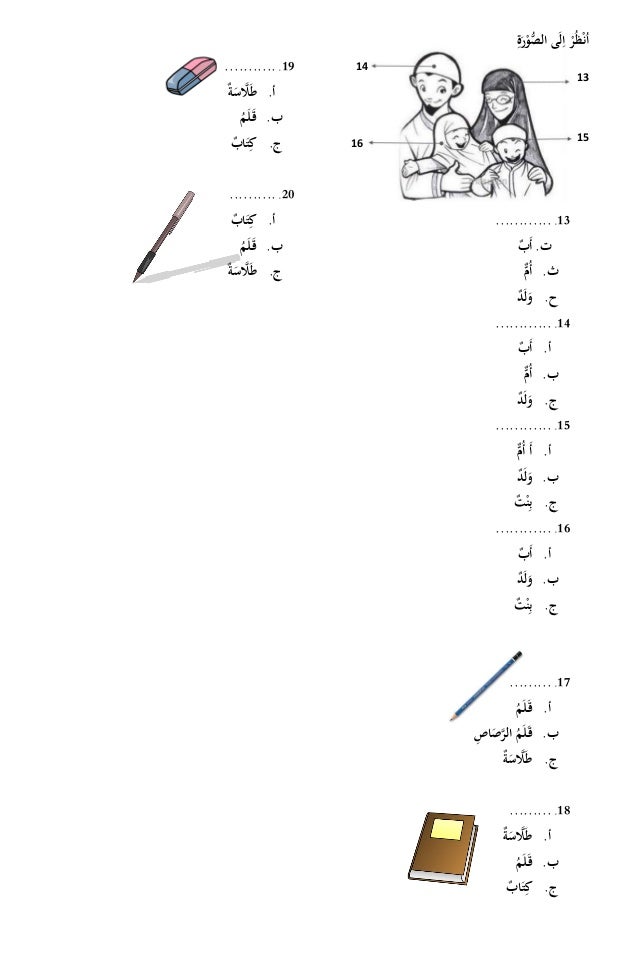 أنْظُرْ اِلَى الصُّوْرَةِ
14
13
16
15
13. ............
ت. أَبٌ
ث. أُمٌّ
ح. وَلَدٌ
14. ............
أ. أَبٌ
ب. أُمٌّ
ج. وَلَدٌ
15. ............
أ. أَ أُمٌّ
ب. وَلَدٌ
ج. بِنْتٌ
16. ............
أ. أَبٌ
ب. وَلَدٌ
ج. بِنْتٌ
17. .........
أ. قَلَمُ
ب. قَلَمُ الرَّصَاصِ
ج. طَلَّاسَةٌ
18. .........
أ. طَلَّاسَةٌ
ب. قَلَمُ
ج. كِتَابٌ
19. ...........
أ. طَلَّاسَةٌ
ب. قَلَمُ
ج. كِتَابٌ
20. ..........
أ. كِتَابٌ
ب. قَلَمُ
ج. طَلَّاسَةٌ